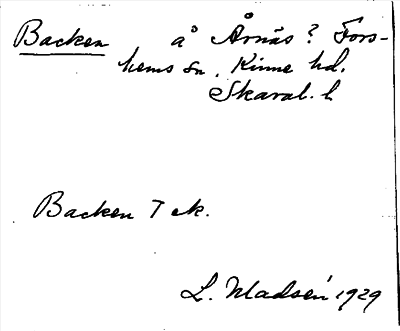 Backen å Årnäs? Fors-
hems sn, Kinne hd.
Skarab. l.
Backen T ek.
L. Madsén 1929